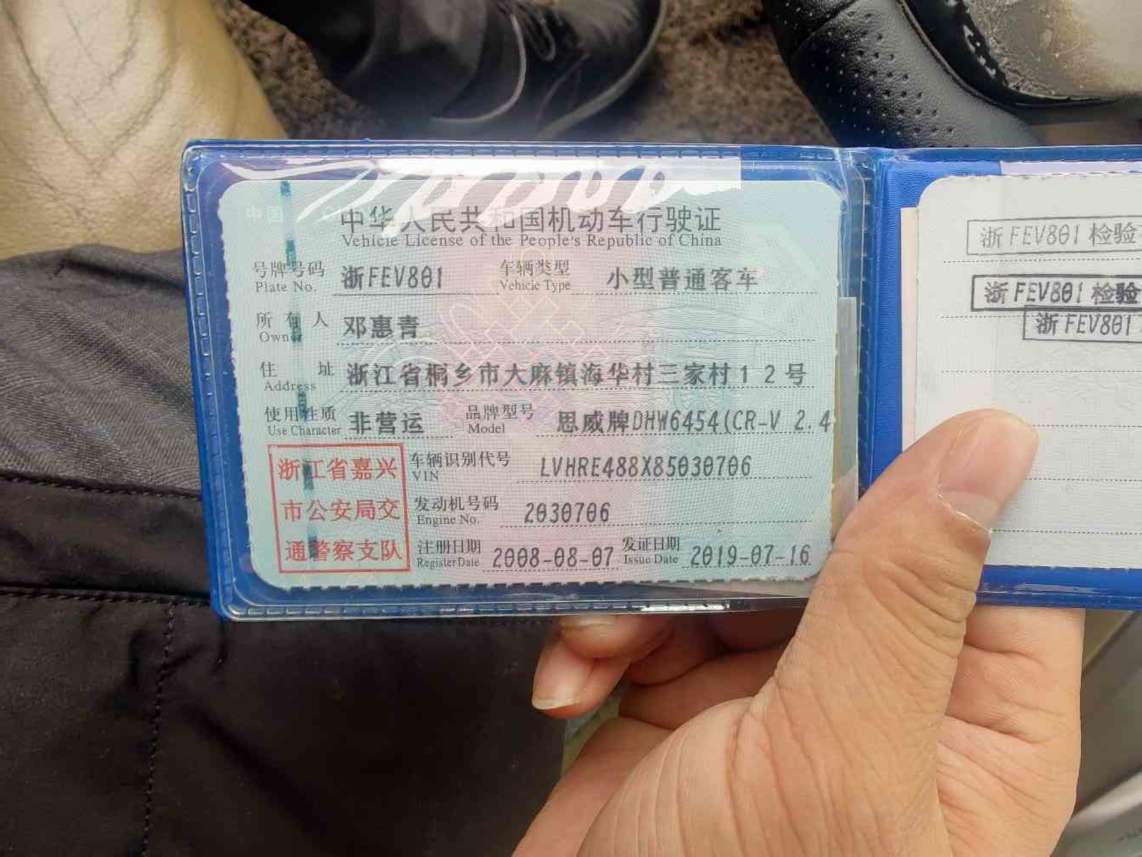 中华人民共和国机动车行驶证
Vehicle License of the People's Republic of China
号牌号码 浙FEV801 车辆类型 小型普通客车
Plate No. Vehicle Type
所有人 邓惠青
Owner
住址 浙江省桐乡市大麻镇海华村三家村12号
Address
使用性质 非营运 品牌型号 思威牌DHW6454(CR-V 2.4
Use Character Model
浙江省嘉兴
市公安局交
通警察支队
车辆识别代号 LVHRE488X85030706
VIN
发动机号码 2030706
Engine No.
注册日期 2008-08-07 发证日期 2019-07-16
Register Date Issue Date
浙FEV801检验
浙FEV801检验
浙FEV801